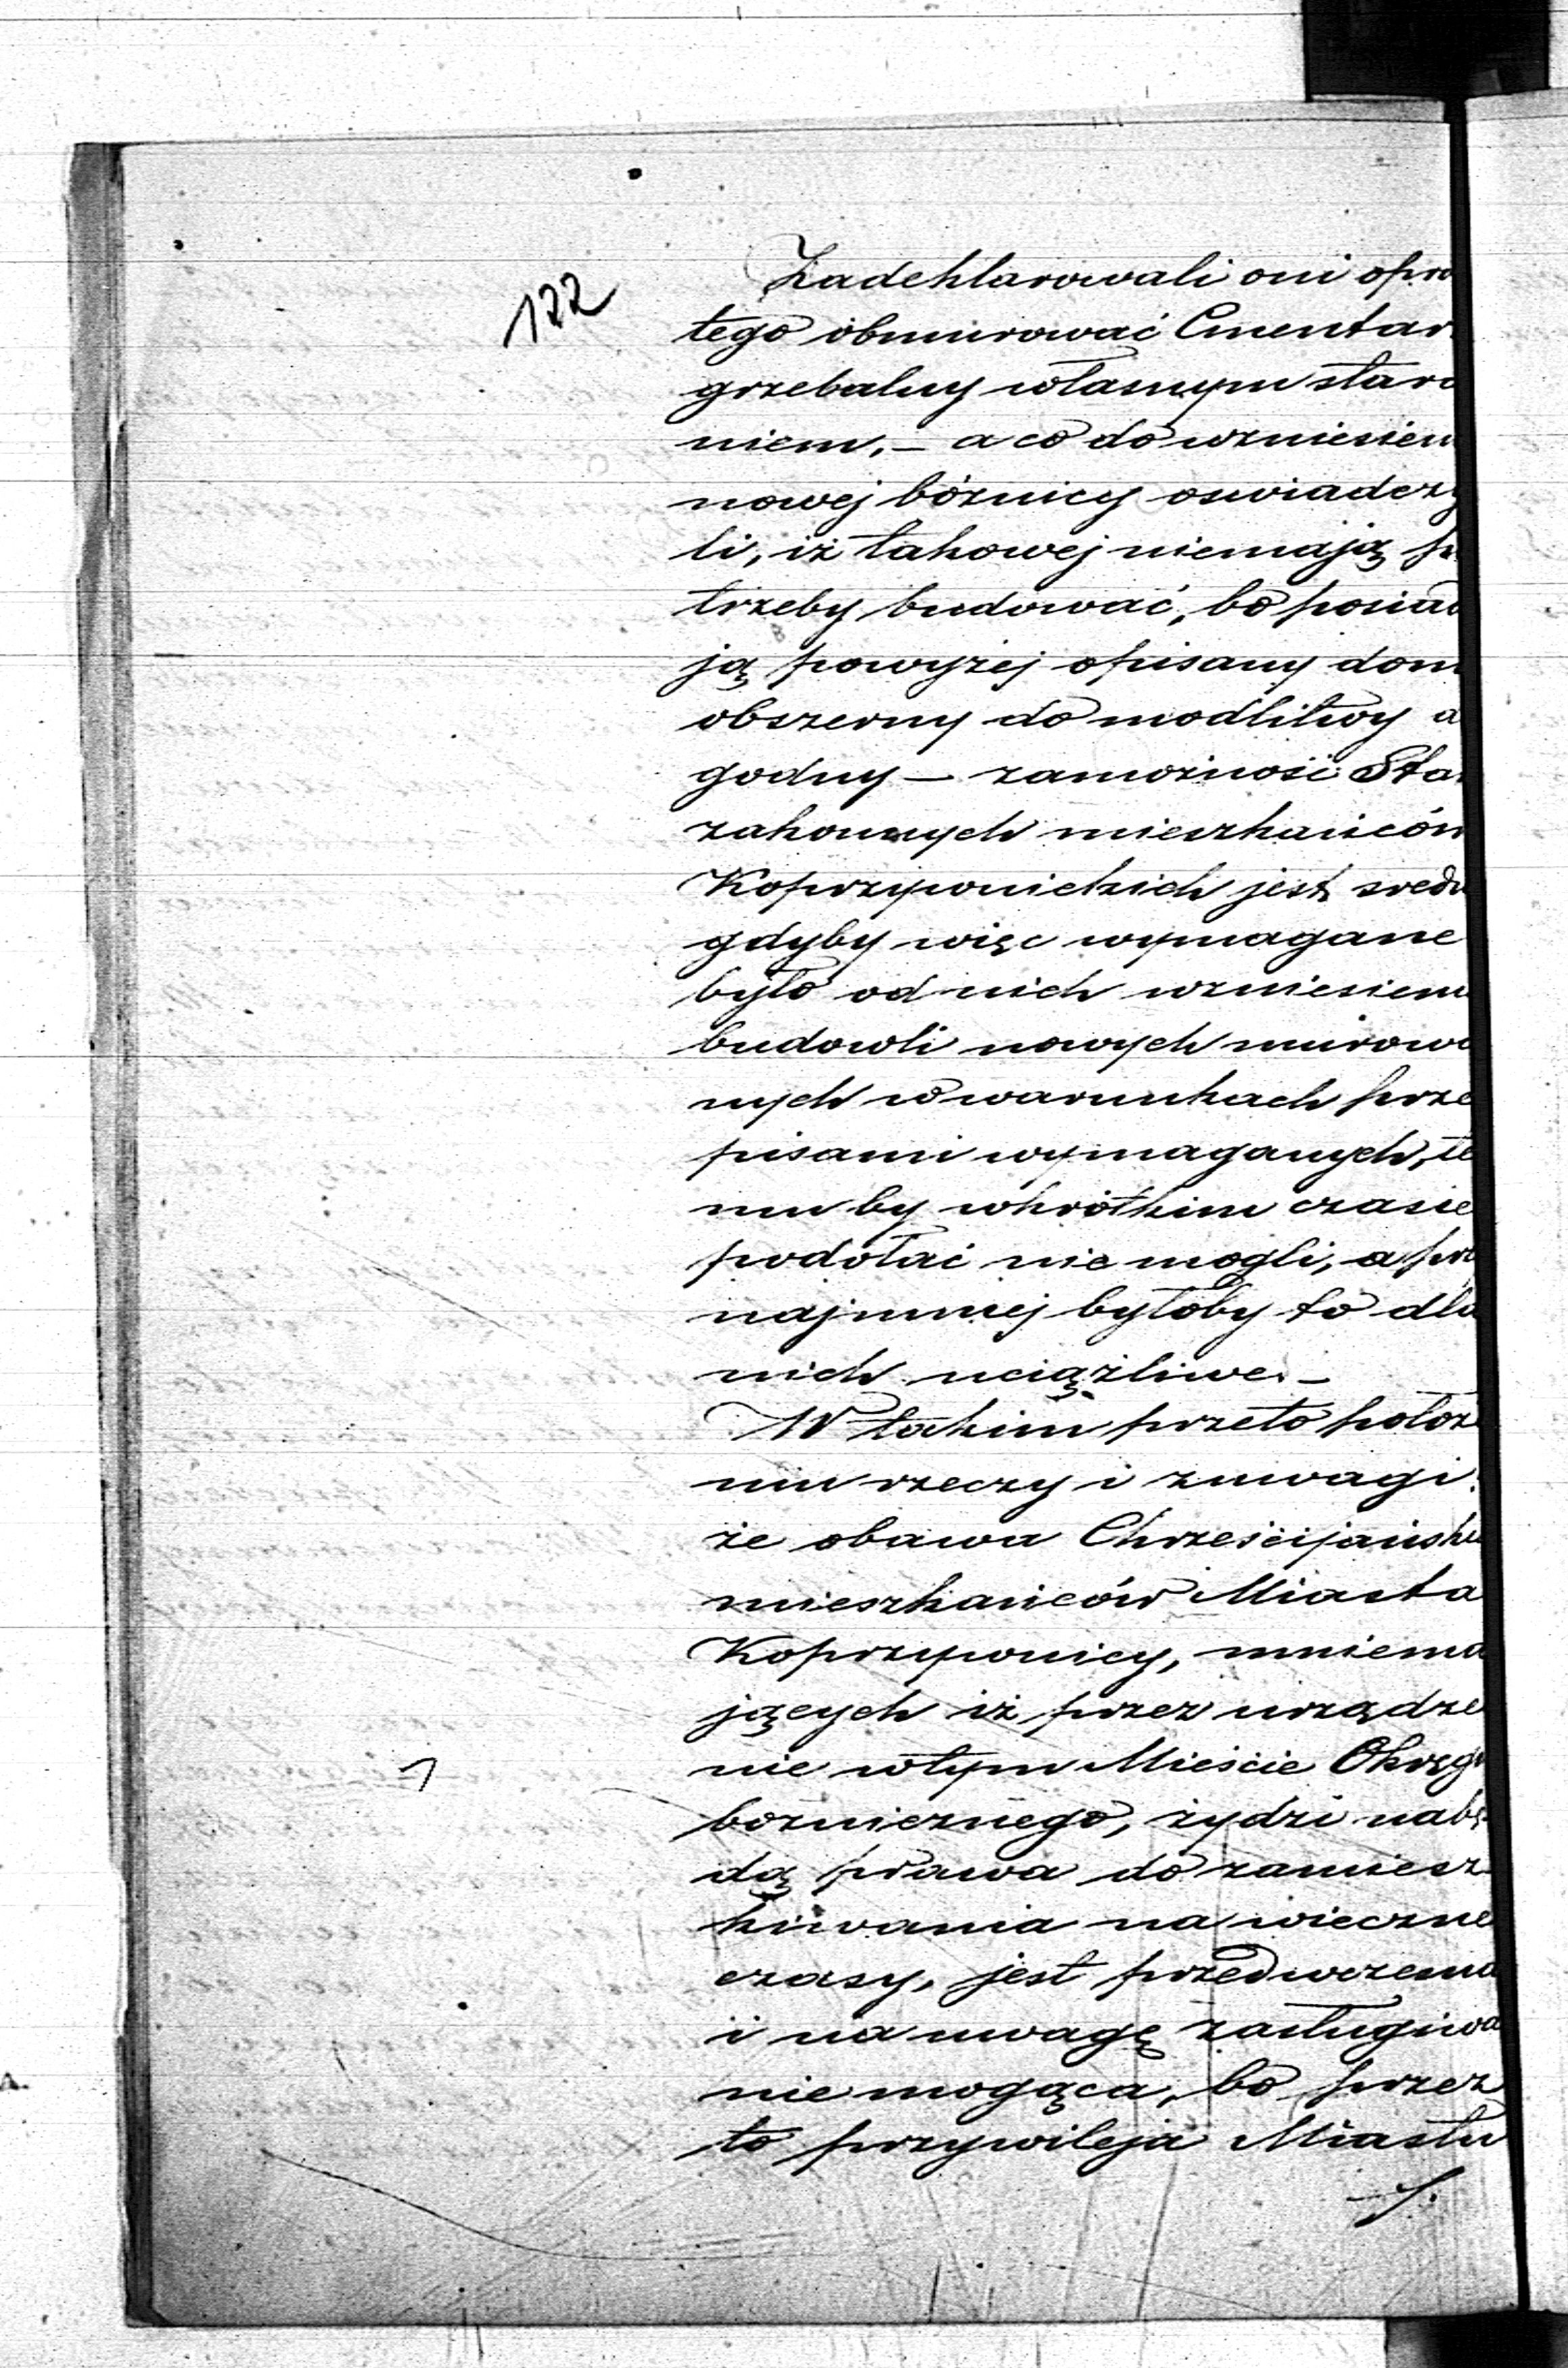 122
Zadeklarowali oni opro
tego obmurować Cmentar
grzebalny własnym stara
niem, – a co do wzniesien
nowej bóżnicy oswiadczy
li, iż takowej niemają po
trzeby budować, bo posiad
ją powyżej opisany dom
obszerny do modlitwy a
godny – zamożność Sta
zakonnych mieszkańców
Koprzywnickich jest sredn
gdyby więc wymagane
było od nich wzniesieni
budowli nowych murowa
nych w warunkach prze
pisami wymaganych, te
mu by wkrótkim czasie
podołać nie mogli, a prz
najmniej byłoby to dla
nich uciążliwe. –
W takim przeto położe
niu rzeczy i zuwagi
że obawa Chrześcijańskic
mieszkańców Miasta
Koprzywnicy, mniema
jących iż przez urządze
nie wtym Mieście Okręgu
bożnicznego, żydzi nabę
dą prawa do zamiesz
kiwania na wieczne
czasy, jest przedwczesna
i na uwagę zasługiwa
nie mogąca, bo przez
to przywileja Miastu
1